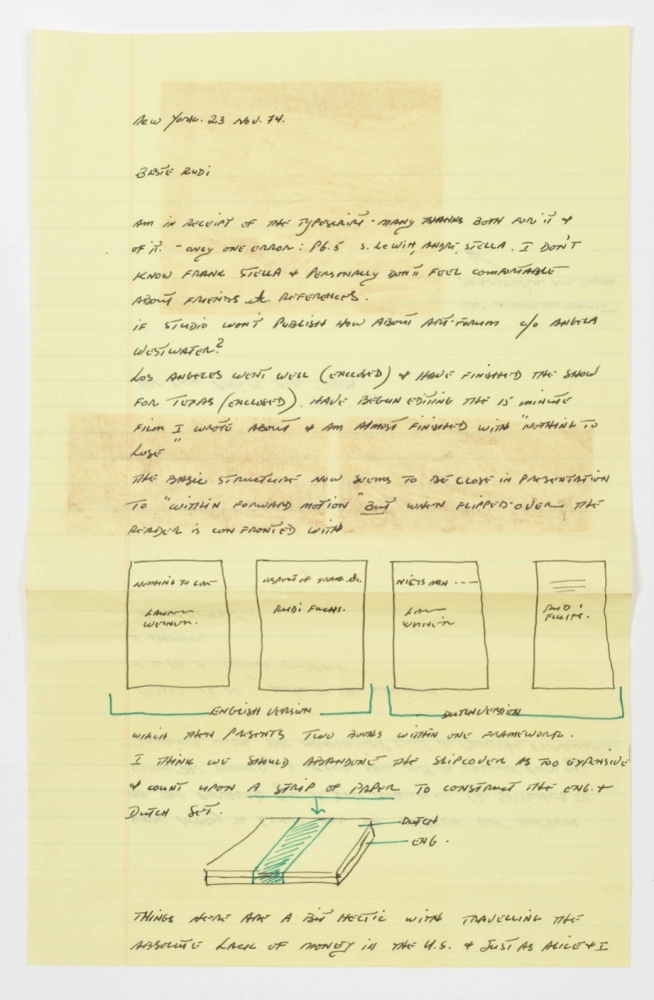 New York. 23 Nov. 74.
Beste Rudi
Am in receipt of the typescript - many thanks both for it &
of it. - only one error: Pg. 5 S. LeWitt, Andre, Stella. I don't
know Frank Stella & personally don't feel comfortable
about friends etc. references.
If Studio won't publish how about Art-Forum c/o Angela
Westwater?
Los Angeles went well (enclosed) & have finished the show
for Texas (enclosed). Have begun editing the 15 minute
film I wrote about & am almost finished with "Nothing to
Lose"
The basic structure now seems to be close in presentation
to "Within Forward Motion" but when flipped-over the
reader is confronted with
Nothing to Lose
Lawrence
Weiner.
Rudi Fuchs.
Niets aan ---
Law
Weiner
Rudi
Fuchs.
English version
Dutch version
which then presents two books within one framework.
I think we should abandone the slipcover as too expensive
& count upon a strip of paper to construct the Eng. +
Dutch set.
Dutch
Eng.
Things here are a bit hectic with travelling the
absolute lack of money in the U.S. & just as Alice & I